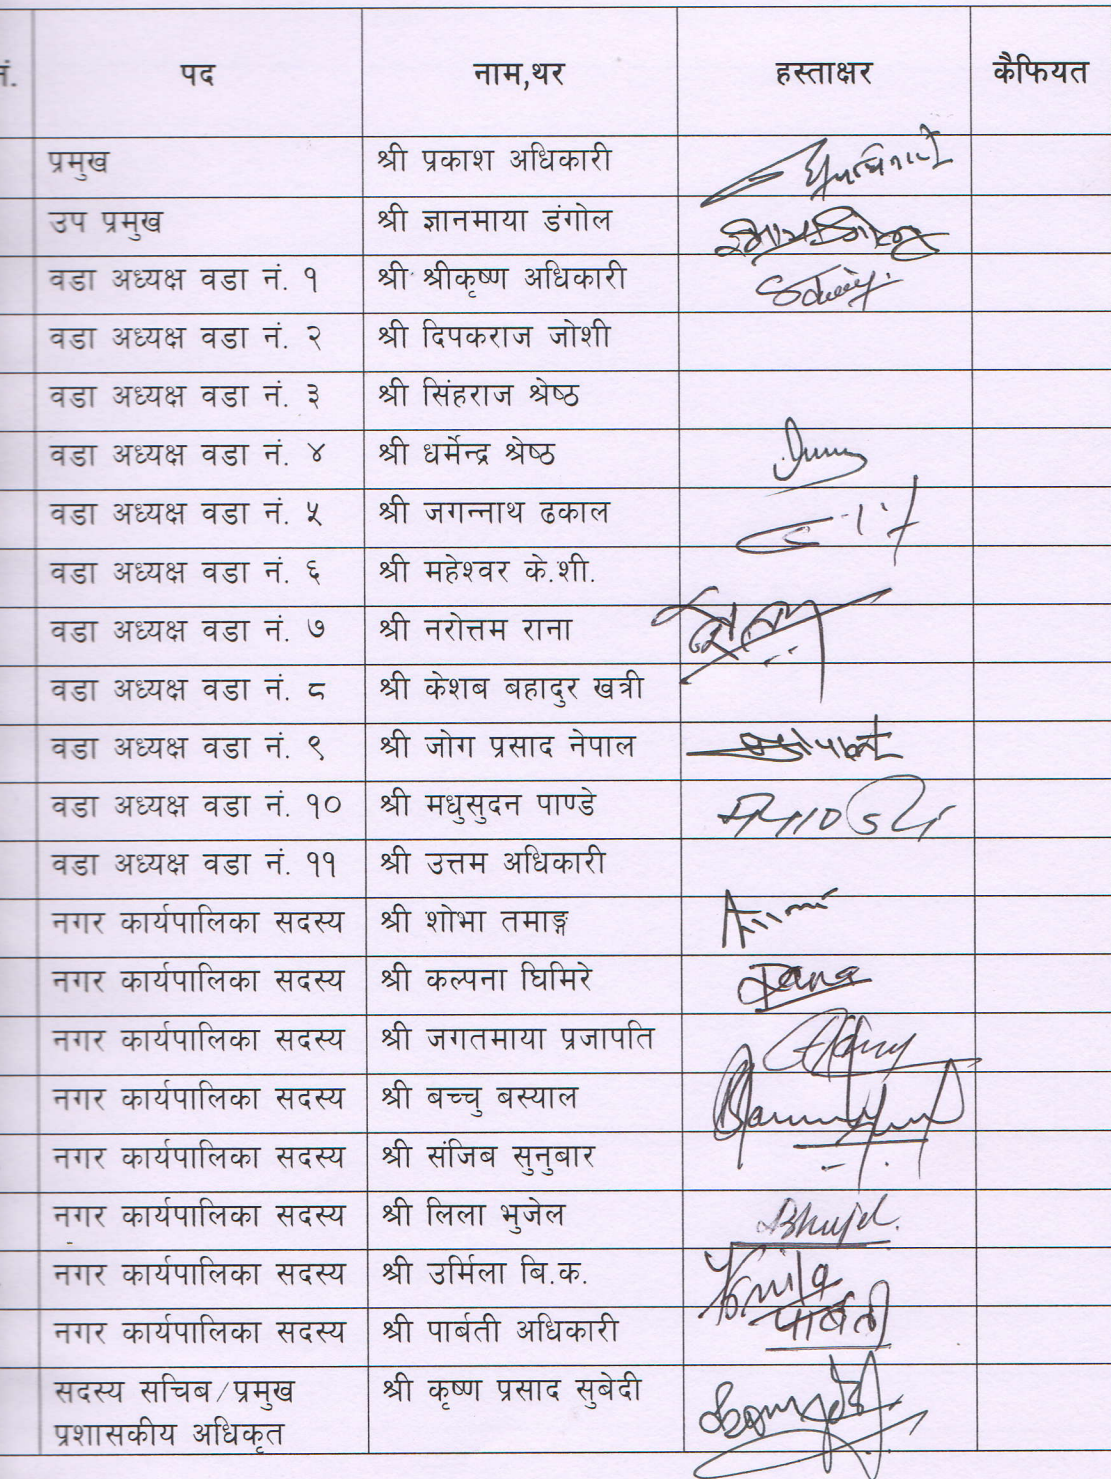 नं. पद नाम,थर हस्ताक्षर कैफियत
प्रमुख श्री प्रकाश अधिकारी
उप प्रमुख श्री ज्ञानमाया डंगोल
वडा अध्यक्ष वडा नं. १ श्री श्रीकृष्ण अधिकारी
वडा अध्यक्ष वडा नं. २ श्री दिपकराज जोशी
वडा अध्यक्ष वडा नं. ३ श्री सिंहराज श्रेष्ठ
वडा अध्यक्ष वडा नं. ४ श्री धर्मेन्द्र श्रेष्ठ
वडा अध्यक्ष वडा नं. ५ श्री जगन्नाथ ढकाल
वडा अध्यक्ष वडा नं. ६ श्री महेश्वर के.शी.
वडा अध्यक्ष वडा नं. ७ श्री नरोत्तम राना
वडा अध्यक्ष वडा नं. ८ श्री केशब बहादुर खत्री
वडा अध्यक्ष वडा नं. ९ श्री जोग प्रसाद नेपाल
वडा अध्यक्ष वडा नं. १० श्री मधुसुदन पाण्डे
वडा अध्यक्ष वडा नं. ११ श्री उत्तम अधिकारी
नगर कार्यपालिका सदस्य श्री शोभा तमाङ्ग
नगर कार्यपालिका सदस्य श्री कल्पना घिमिरे
नगर कार्यपालिका सदस्य श्री जगतमाया प्रजापति
नगर कार्यपालिका सदस्य श्री बच्चु बस्याल
नगर कार्यपालिका सदस्य श्री संजिब सुनुबार
नगर कार्यपालिका सदस्य श्री लिला भुजेल Bhujel.
नगर कार्यपालिका सदस्य श्री उर्मिला बि.क.
नगर कार्यपालिका सदस्य श्री पार्बती अधिकारी पार्बती
सदस्य सचिब/प्रमुख श्री कृष्ण प्रसाद सुबेदी
प्रशासकीय अधिकृत